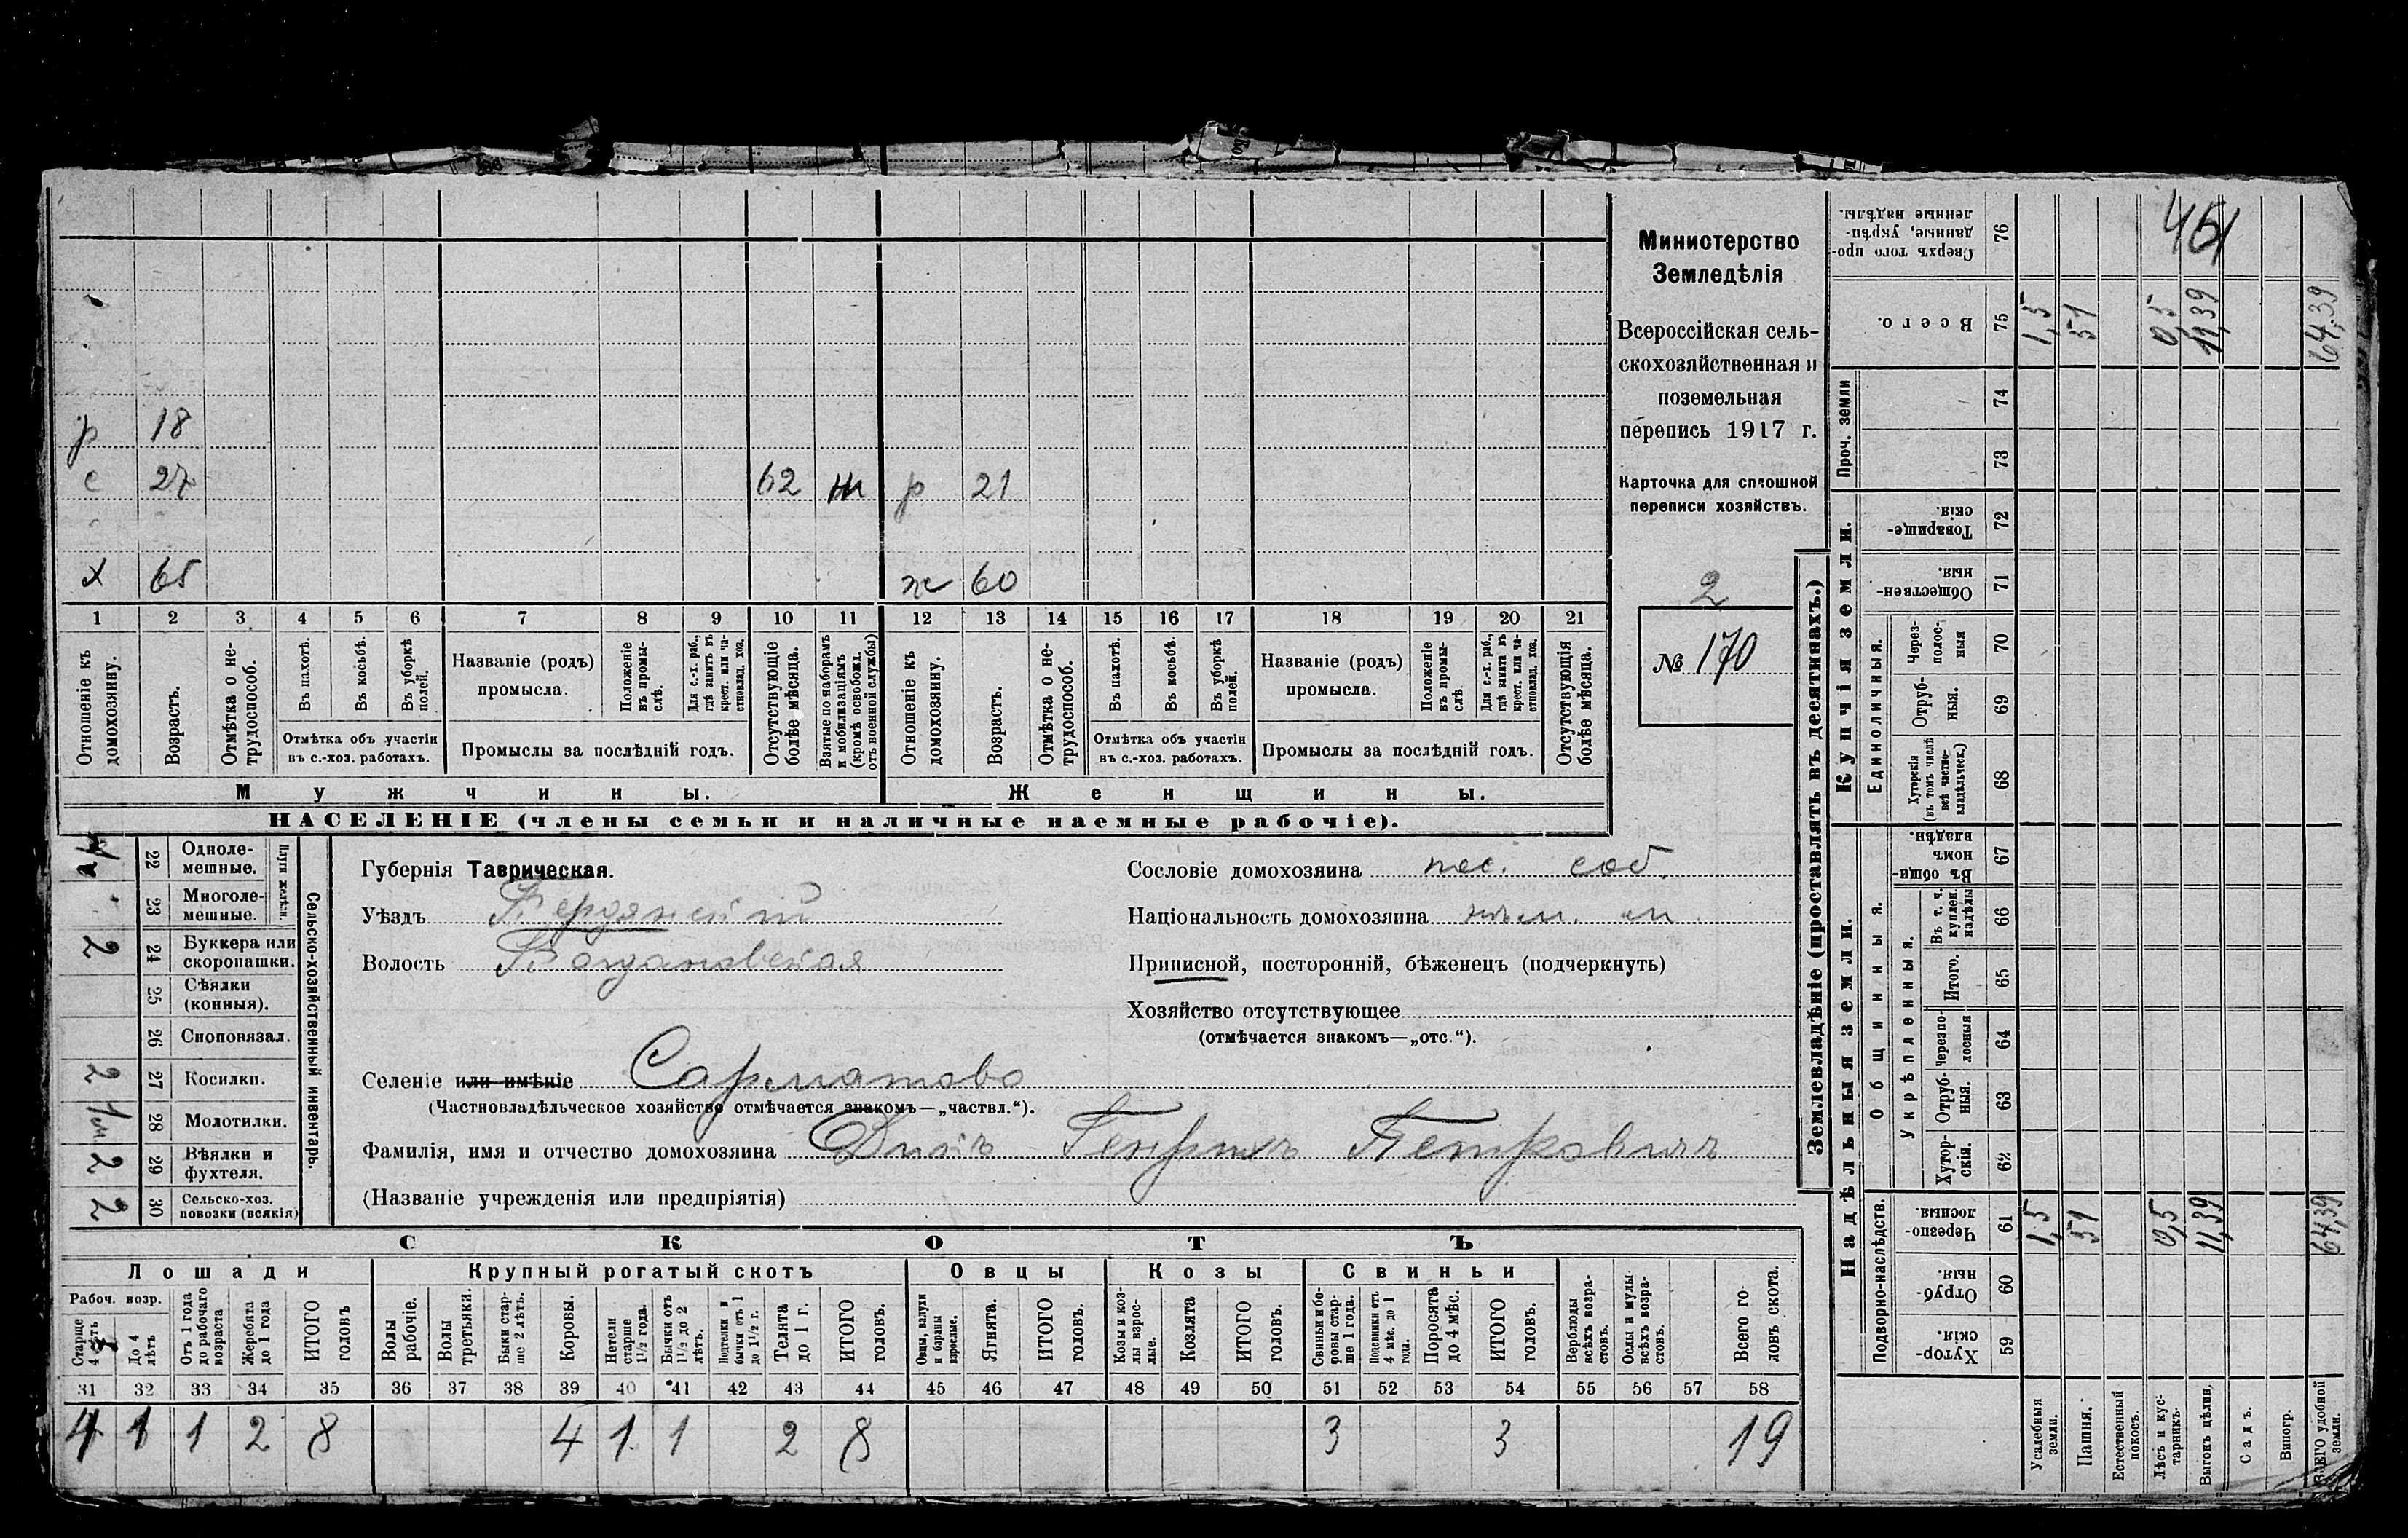 Министерство
Земледѣлія
Всероссійская сель-
скохозяйственная и
поземельная
перепись 1917 г.
Карточка для сплошной
переписи хозяйствъ.
2
№ 170
р 18
с 27 62 р 21
х 65 ж 60
1 2 3 4 5 6 7 8 9 10 11 12 13 14 15 16 17 18 19 20 21
Отношеніе къ домохозяину.
Возрастъ.
Отмѣтка о не-трудоспособ.
Въ пахотѣ.
Въ косьбѣ.
Въ уборкѣ полей.
Отмѣтка объ участіи
въ с.-хоз. работахъ.
Названіе (родъ)
промысла.
Положеніе въ промы-слѣ.
Для с.-х. раб., гдѣ занятъ въ крест. или ча-стновлад. хоз.
Промыслы за послѣдній годъ.
Отсутствующіе болѣе мѣсяца.
Взятые по наборамъ и мобилизаціямъ (кромѣ освобожд. отъ военной службы)
Отношеніе къ домохозяину.
Возрастъ.
Отмѣтка о не-трудоспособ.
Въ пахотѣ.
Въ косьбѣ.
Въ уборкѣ полей.
Отмѣтка объ участіи
въ с.-хоз. работахъ.
Названіе (родъ)
промысла.
Положеніе въ промы-слѣ.
Для с.-х. раб., гдѣ занята въ крест. или ча-стновлад. хоз.
Промыслы за послѣдній годъ.
Отсутствующія болѣе мѣсяца.
Мужчины.
Женщины.
НАСЕЛЕНІЕ (члены семьи и наличные наемные рабочіе).
Сельско-хозяйственный инвентарь.
Плуги желѣзн.
22 Одноле-мешные.
23 Многоле-мешные.
2 24 Буккера или скоропашки.
25 Сѣялки (конныя).
26 Сноповязал.
2 27 Косилки.
28 Молотилки.
2 29 Вѣялки и фухтеля.
2 30 Сельско-хоз. повозки (всякія)
Губернія Таврическая.
Уѣздъ Бердянскій
Волость Богдановская
Селеніе или имѣніе Сарматово
(Частновладѣльческое хозяйство отмѣчается знакомъ—„частвл.“).
Фамилія, имя и отчество домохозяина Дикъ Генрихъ Петровичъ
(Названіе учрежденія или предпріятія)
Сословіе домохозяина пос. соб.
Національность домохозяина нѣм. м.
Приписной, посторонній, бѣженецъ (подчеркнуть)
Хозяйство отсутствующее
(отмѣчается знакомъ—„отс.“).
СКОТЪ
Лошади Крупный рогатый скотъ Овцы Козы Свиньи
Рабоч. возр.
Старше 4 лѣтъ
До 4 лѣтъ
Отъ 1 года до рабочаго возраста
Жеребята до 1 года
ИТОГО головъ
Волы рабочіе.
Волы третьяки.
Быки стар-ше 2 лѣтъ.
Коровы.
Нетели старше 1½ года.
Бычки отъ 1½ до 2 лѣтъ.
Подтелки и бычки отъ 1 до 1½ г.
Телята до 1 г.
ИТОГО головъ.
Овцы, валухи и бараны взрослые.
Ягнята.
ИТОГО головъ.
Козы и коз-лы взрос-лые.
Козлята
ИТОГО головъ.
Свиньи и бо-ровы стар-ше 1 года.
Подсвинки отъ 4 мѣс. до 1 года.
Поросята до 4 мѣс.
ИТОГО головъ.
Верблюды всѣхъ возра-стовъ.
Ослы и мулы всѣхъ возра-стовъ.
Всего го-ловъ скота.
31 32 33 34 35 36 37 38 39 40 41 42 43 44 45 46 47 48 49 50 51 52 53 54 55 56 57 58
4 1 1 2 8 4 1 1 2 8 3 3 19
Землевладѣніе (проставлять въ десятинахъ.)
Надѣльныя земли.
Купчія земли.
Проч. земли
Подворно-наслѣдств.
Общинныя.
Укрѣпленныя.
Единоличныя.
Сверхъ того про-данные, укрѣп-ленные надѣлы. 76
Всего. 75
74
73
Товарище-скія. 72
Обществен-ныя. 71
Через-полос-ныя 70
Отруб-ныя. 69
Хуторскія (въ томъ числѣ всѣ частно-владѣльческ.) 68
Въ общин-номъ владѣн. 67
Въ т. ч. куплен. надѣлы 66
Итого. 65
Черезпо-лосныя 64
Отруб-ныя. 63
Хутор-скія. 62
Черезпо-лосныя. 61
Отруб-ныя. 60
Хутор-скія. 59
461
1,5 51 0,5 11,39 64,39
1,5 51 0,5 11,39 64,39
Усадебныя земли.
Пашня.
Естественный покосъ.
Лѣсъ и кус-тарникъ.
Выгонъ цѣлин.
Садъ.
Виногр.
ВСЕГО удобной земли.